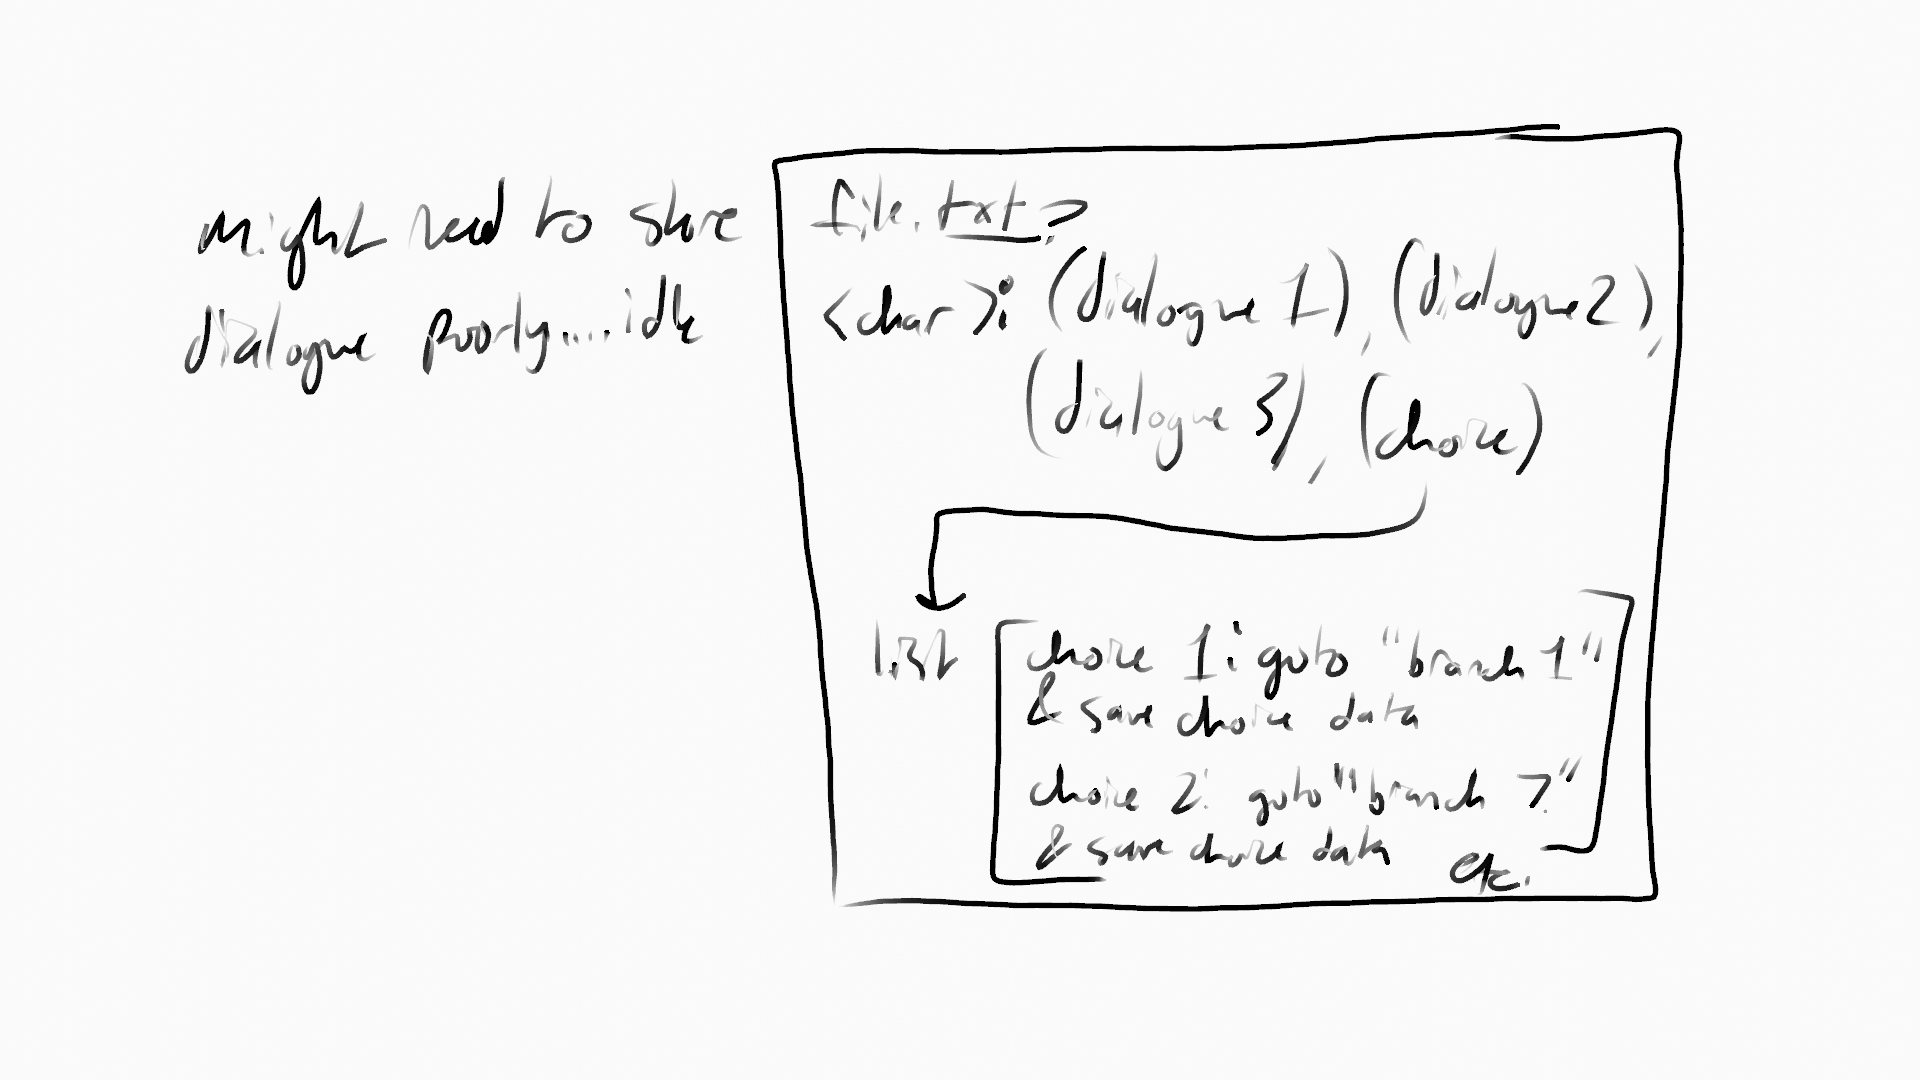 might need to store
dialogue poorly....idk
file.txt?
<char>: (dialogue 1), (dialogue 2),
(dialogue 3), (choice)
list
choice 1: goto "branch 1"
& save choice data
choice 2: goto "branch ?"
& save choice data
etc.